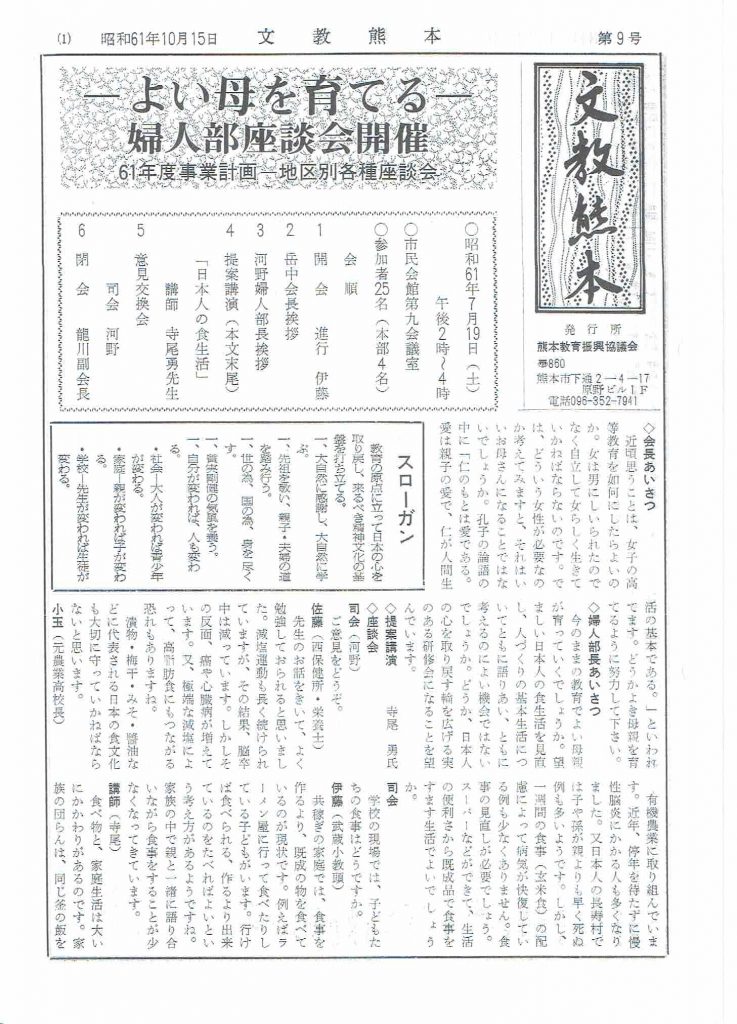 (1) 昭和61年10月15日 文教熊本 第9号
文教熊本
発行所
熊本教育振興協議会
〒860
熊本市下通2―4―17
原野ビル1F
電話096-352-7941
―よい母を育てる―
婦人部座談会開催
61年度事業計画―地区別各種座談会
○昭和61年7月19日(土)
午後2時~4時
○市民会館第九会議室
○参加者25名(本部4名)
会順
1 開会 進行 伊藤
2 岳中会長挨拶
3 河野婦人部長挨拶
4 提案講演(本文末尾)
「日本人の食生活」
講師 寺尾勇先生
5 意見交換会
司会 河野
6 閉会 龍川副会長
◇会長あいさつ
近頃思うことは、女子の高
等教育を如何にしたらよいの
か。女は男にしいられたので
なく自立して女らしく生きて
いかねばならないのです。で
は、どういう女性が必要なの
か考えてみますと、それはい
いお母さんになることではな
いでしょうか。孔子の論語の
中に「仁のもとは愛である。
愛は親子の愛で、仁が人間生
スローガン
教育の原点に立って日本の心を
取り戻し、来るべき精神文化の基
盤を打ち立てる。
一、大自然に感謝し、大自然に学
ぶ。
一、先祖を敬い、親子・夫婦の道
を踏み行う。
一、世の為、国の為、身を尽く
す。
一、質実剛健の気風を養う。
一、自分が変われば、人も変わ
る。
・社会―大人が変われば青少年
が変わる。
・家庭―親が変われば子が変わ
る。
・学校―先生が変われば生徒が
変わる。
活の基本である。」といわれ
てます。どうかよき母親を育
てるように努力して下さい。
◇婦人部長あいさつ
今のままの教育でよい母親
が育っていくでしょうか。望
ましい日本人の食生活を見直
し、人づくりの基本生活につ
いてともに語りあい、ともに
考えるのによい機会ではない
でしょうか。どうか、日本人
の心を取り戻す輪を広げる実
のある研修会になることを望
んでいます。
◇提案講演 寺尾 勇氏
◇座談会
司会(河野)
ご意見をどうぞ。
佐藤(西保健所・栄養士)
先生のお話をきいて、よく
勉強しておられると思いまし
た。減塩運動も長く続けられ
ていますが、その結果、脳卒
中は減っています。しかしそ
の反面、癌や心臓病が増えて
います。又、極端な減塩によ
って、高脂肪食にもつながる
恐れもありますね。
漬物・梅干・みそ・醬油な
どに代表される日本の食文化
も大切に守っていかねばなら
ないと思います。
小玉(元農業高校長)
有機農業に取り組んでいま
す。近年、停年を待たずに慢
性脳炎にかかる人も多くなり
ました。又日本人の長寿村で
は子や孫が親よりも早く死ぬ
例も多いようです。しかし、
一週間の食事(玄米食)の配
慮によって病気が快復してい
る例も少なくありません。食
事の見直しが必要でしょう。
スーパーなどができて、生活
の便利さから既成品で食事を
すます生活でよいでしょう
か。
司会
学校の現場では、子どもた
ちの食事はどうですか。
伊藤(武蔵小教頭)
共稼ぎの家庭では、食事を
作るより、既成の物を食べて
いるのが現状です。例えばラ
ーメン屋に行って食べたりし
ている子どももいます。行け
ば食べられる、作るより出来
ているのをたべればよいとい
う考え方があるようですね。
家族の中で親と一緒に語り合
いながら食事をすることが少
なくなってきています。
講師(寺尾)
食べ物と、家庭生活は大い
にかかわりがあるのです。家
族の団らんは、同じ釜の飯を